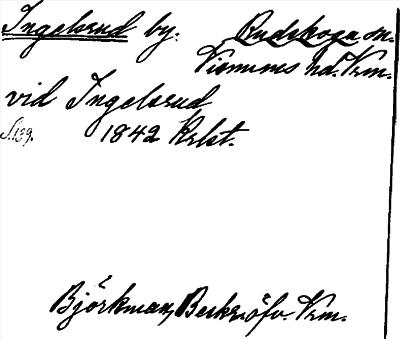 Ingelsrud by. Rudskoga sn.
Visnums hd. Vrm.
vid Ingelsrud
S. 139. 1842 Krlst.
Björkman, Beskr. öfv. Vrm.